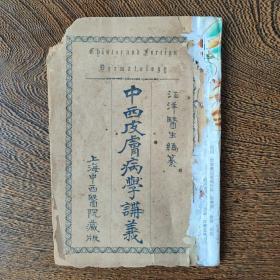 Chinese and Foreign
Dermatology.
汪洋醫生編纂
中西皮膚病學講義
上海中西醫院藏版